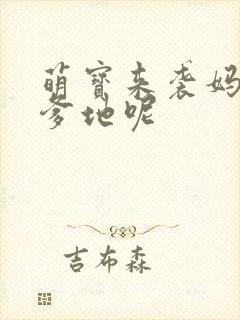 萌宝来袭妈
爹地呢
吉布森